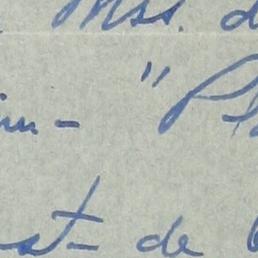 Mss. d
im- "Pl
st- de